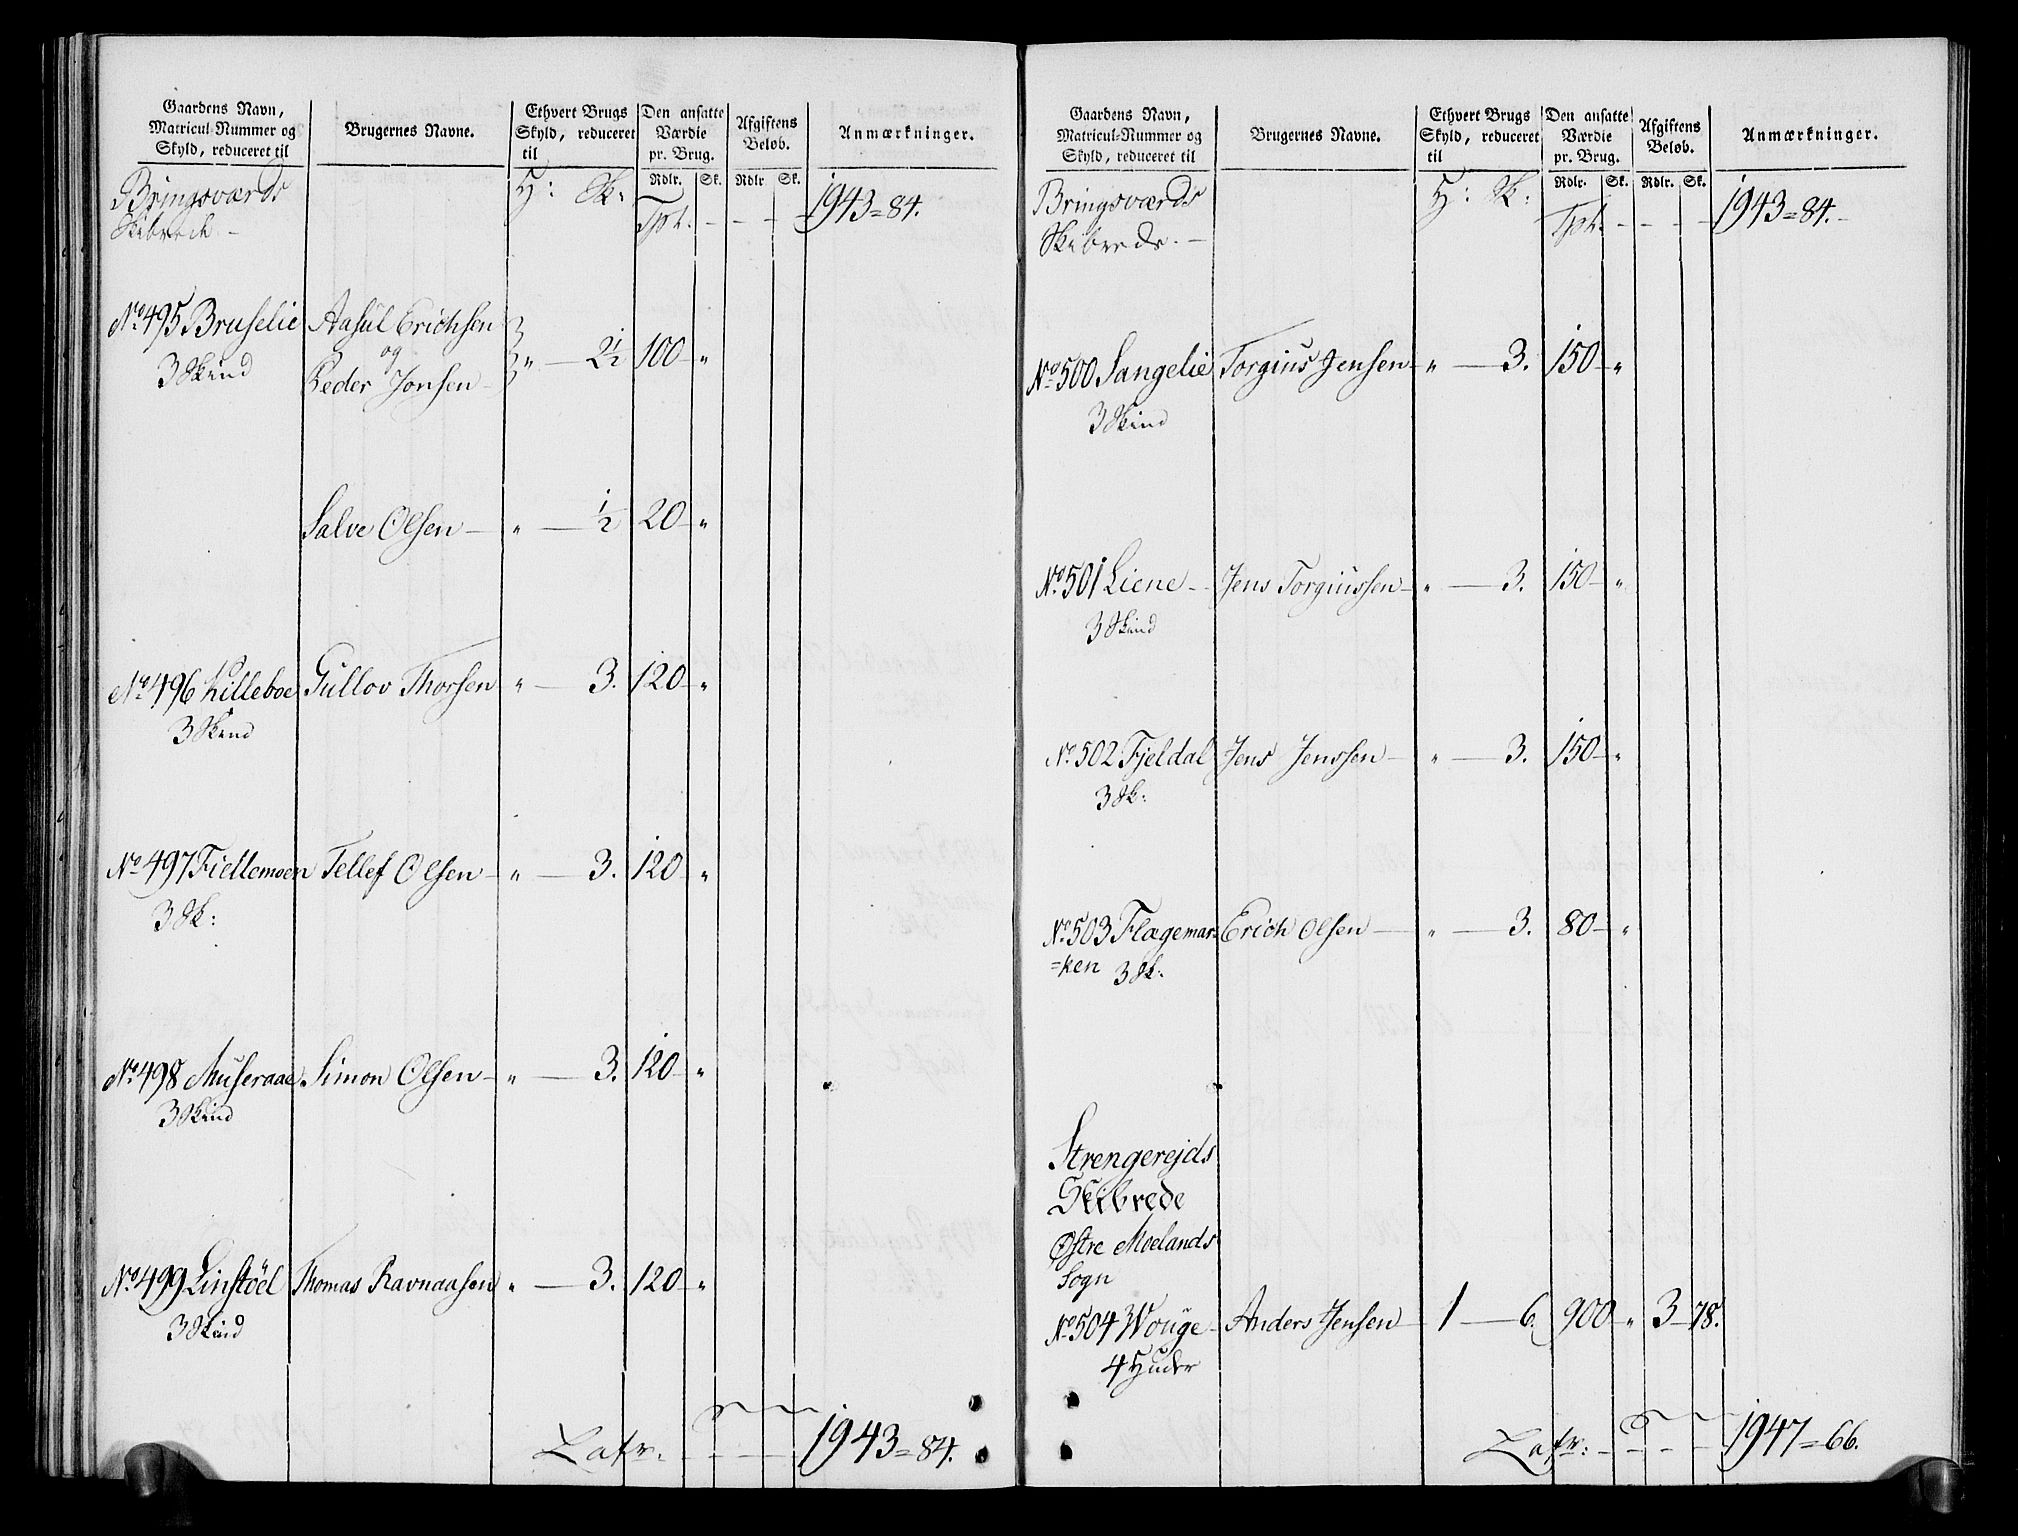 Gaardens Navn,
Matricul-Nummer og
Skyld, reduceret til
Brugernes Navne.
Ethvert Brugs
Skyld, reduceret
til
Den ansatte
Værdie
pr. Brug.
Afgiftens
Beløb.
Anmærkninger.
Rdlr. Sk. Rdlr Sk.
Bringsværds H: Sk: Tpt. - - - 1943=84.
Skibrede -
No 495 Bruselie Aasul Erichsen
og
3 Skind Peder Jonsen - " - 2½ 100 - "
Salve Olsen - " - ½ 20 - "
No 496 Lilleboe Gullov Thorsen " - 3. 120 - "
3 Skind
No 497 Fiellemoen Tellef Olsen - " - 3. 120 - "
3 Sk:
No 498 Museraae Simon Olsen - " - 3. 120 - "
3 Skind
No 499 Linstöel Thomas Ravnaasen " - 3. 120 - "
3 Skind
Latr. - - - 1943=84.
Gaardens Navn,
Matricul-Nummer og
Skyld, reduceret til
Brugernes Navne.
Ethvert Brugs
Skyld, reduceret
til
Den ansatte
Værdie
pr. Brug.
Afgiftens
Beløb.
Anmærkninger.
Rdlr. Sk. Rdlr. Sk.
Bringsværds H: Sk: Tpt. - - - 1943=84. -
Skibreds. -
No 500 Sangelie Torgius Jensen - " - 3. 150 - "
3 Skind
No 501 Liene - Jens Torgiussen - " - 3. 150 - "
3 Skind
No 502 Fjeldal Jens Jenssen - " - 3. 150 - "
3 Sk:
No 503 Flægemar= Erich Olsen - " - 3. 80 - "
=ken 3 Sk:
Strengerejds
Skibrede
Østre Moelands
Sogn
No 504 Wouge - Anders Jensen - 1 - 6. 900 - " 3 - 78.
4 Huder
Latr: - - - - 1947=66.